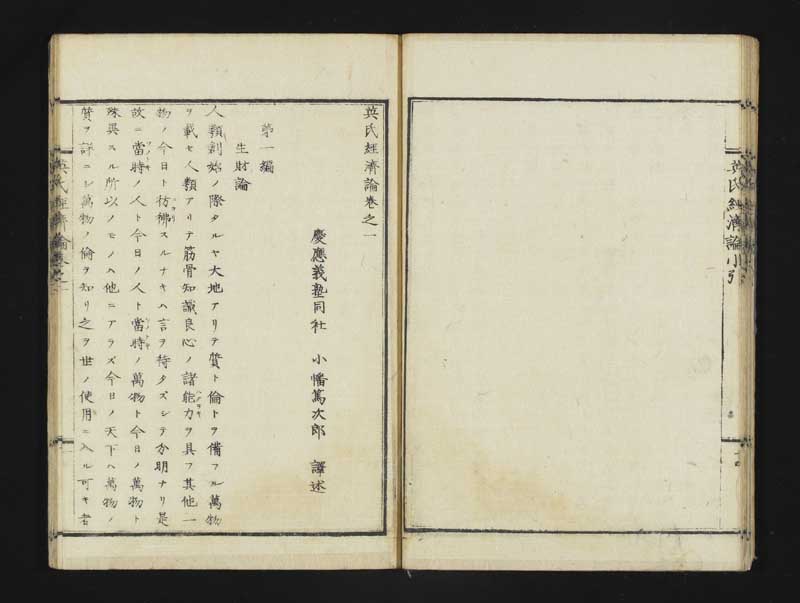 英氏經濟論小引
英氏經濟論卷之一
慶應義塾同社 小幡篤次郎 譯述
第一編
生財論
人類創始ノ際タルヤ大地アリテ質ト倫トヲ備フル萬物
ヲ載セ人類アリテ筋骨知識良心ノ諸能力ヲ具フ其他一
物ノ今日ト彷彿スルナキハ言ヲ待タズシテ分明ナリ是
故ニ當時ノ人ト今日ノ人ト當時ノ萬物ト今日ノ萬物ト
殊異スル所以ノモノハ他ニアラズ今日ノ天下ハ萬物ノ
質ヲ詳ニシ萬物ノ倫ヲ知リ之ヲ世ノ使用ニ入ル可キ者
英氏經濟論卷之一